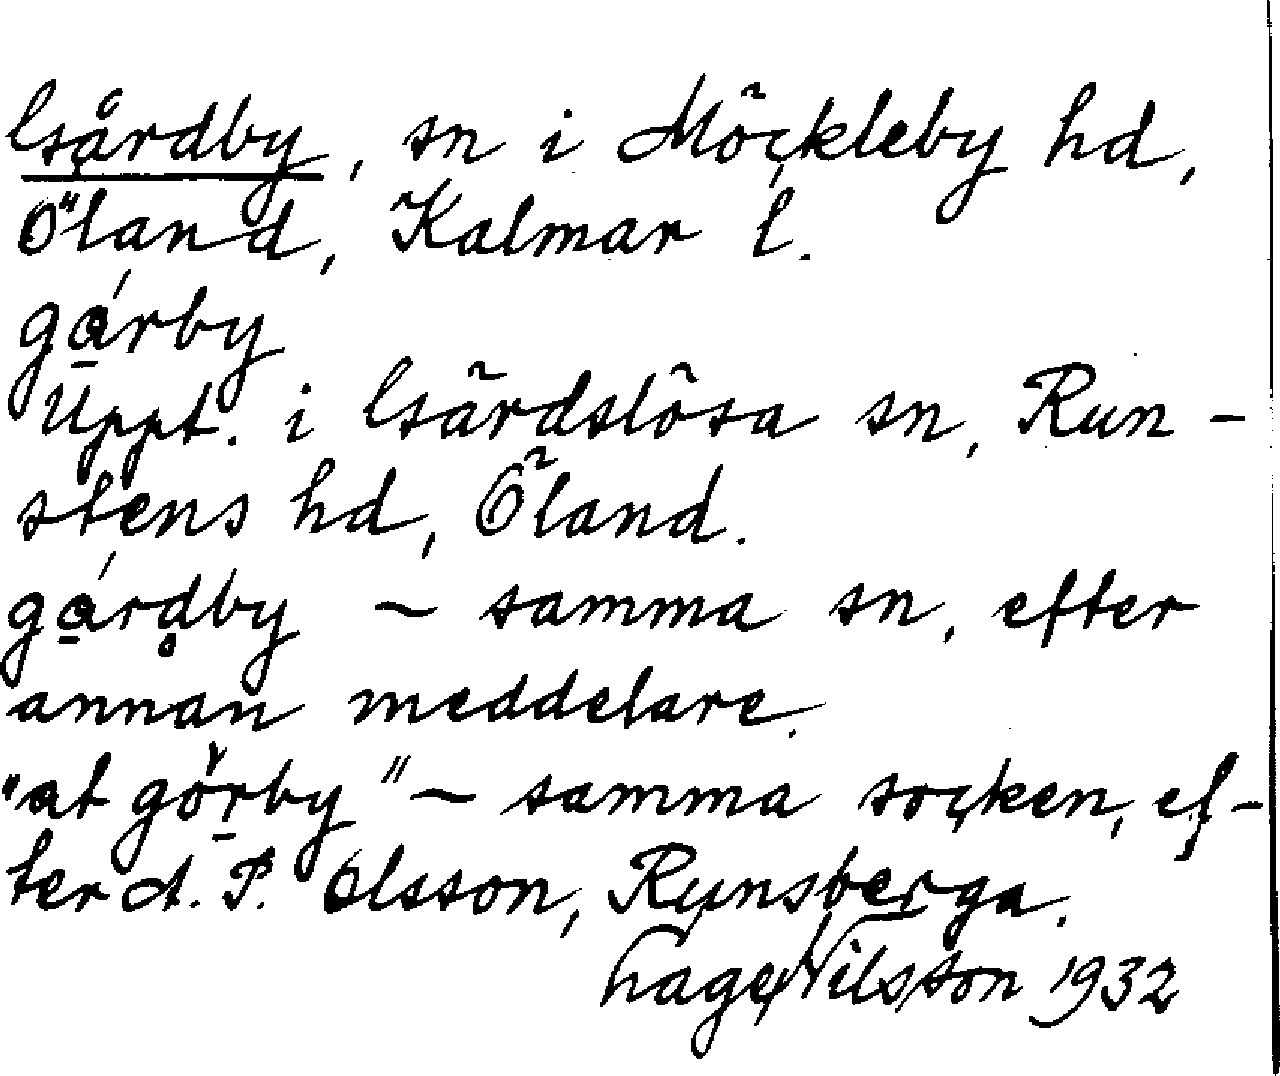 Gårdby, sn i Möckleby hd,
Öland, Kalmar l.
gárby
Uppt. i Gärdslösa sn, Run-
stens hd, Öland.
gárdby ~ samma sn, efter
annan meddelare.
"at görby" ~ samma socken, ef-
ter A. P. Olsson, Runsberga.
Hage Nilsson 1932